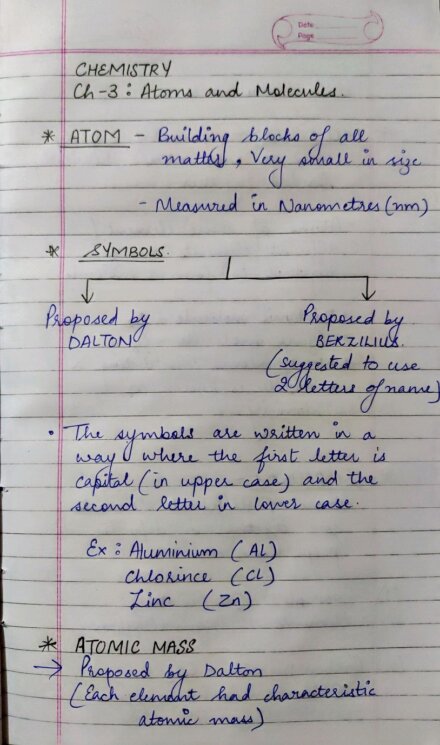 Date
Page
CHEMISTRY
Ch-3 : Atoms and Molecules.
* ATOM - Building blocks of all
matter, Very small in size
- Measured in Nanometres (nm)
* SYMBOLS.
Proposed by
DALTON
Proposed by
BERZILIUS.
(suggested to use
2 letters of name)
• The symbols are written in a
way where the first letter is
capital (in upper case) and the
second letter in lower case.
Ex : Aluminium (Al)
Chlorince (Cl)
Zinc (Zn)
* ATOMIC MASS
→ Proposed by Dalton
(Each element had characteristic
atomic mass)